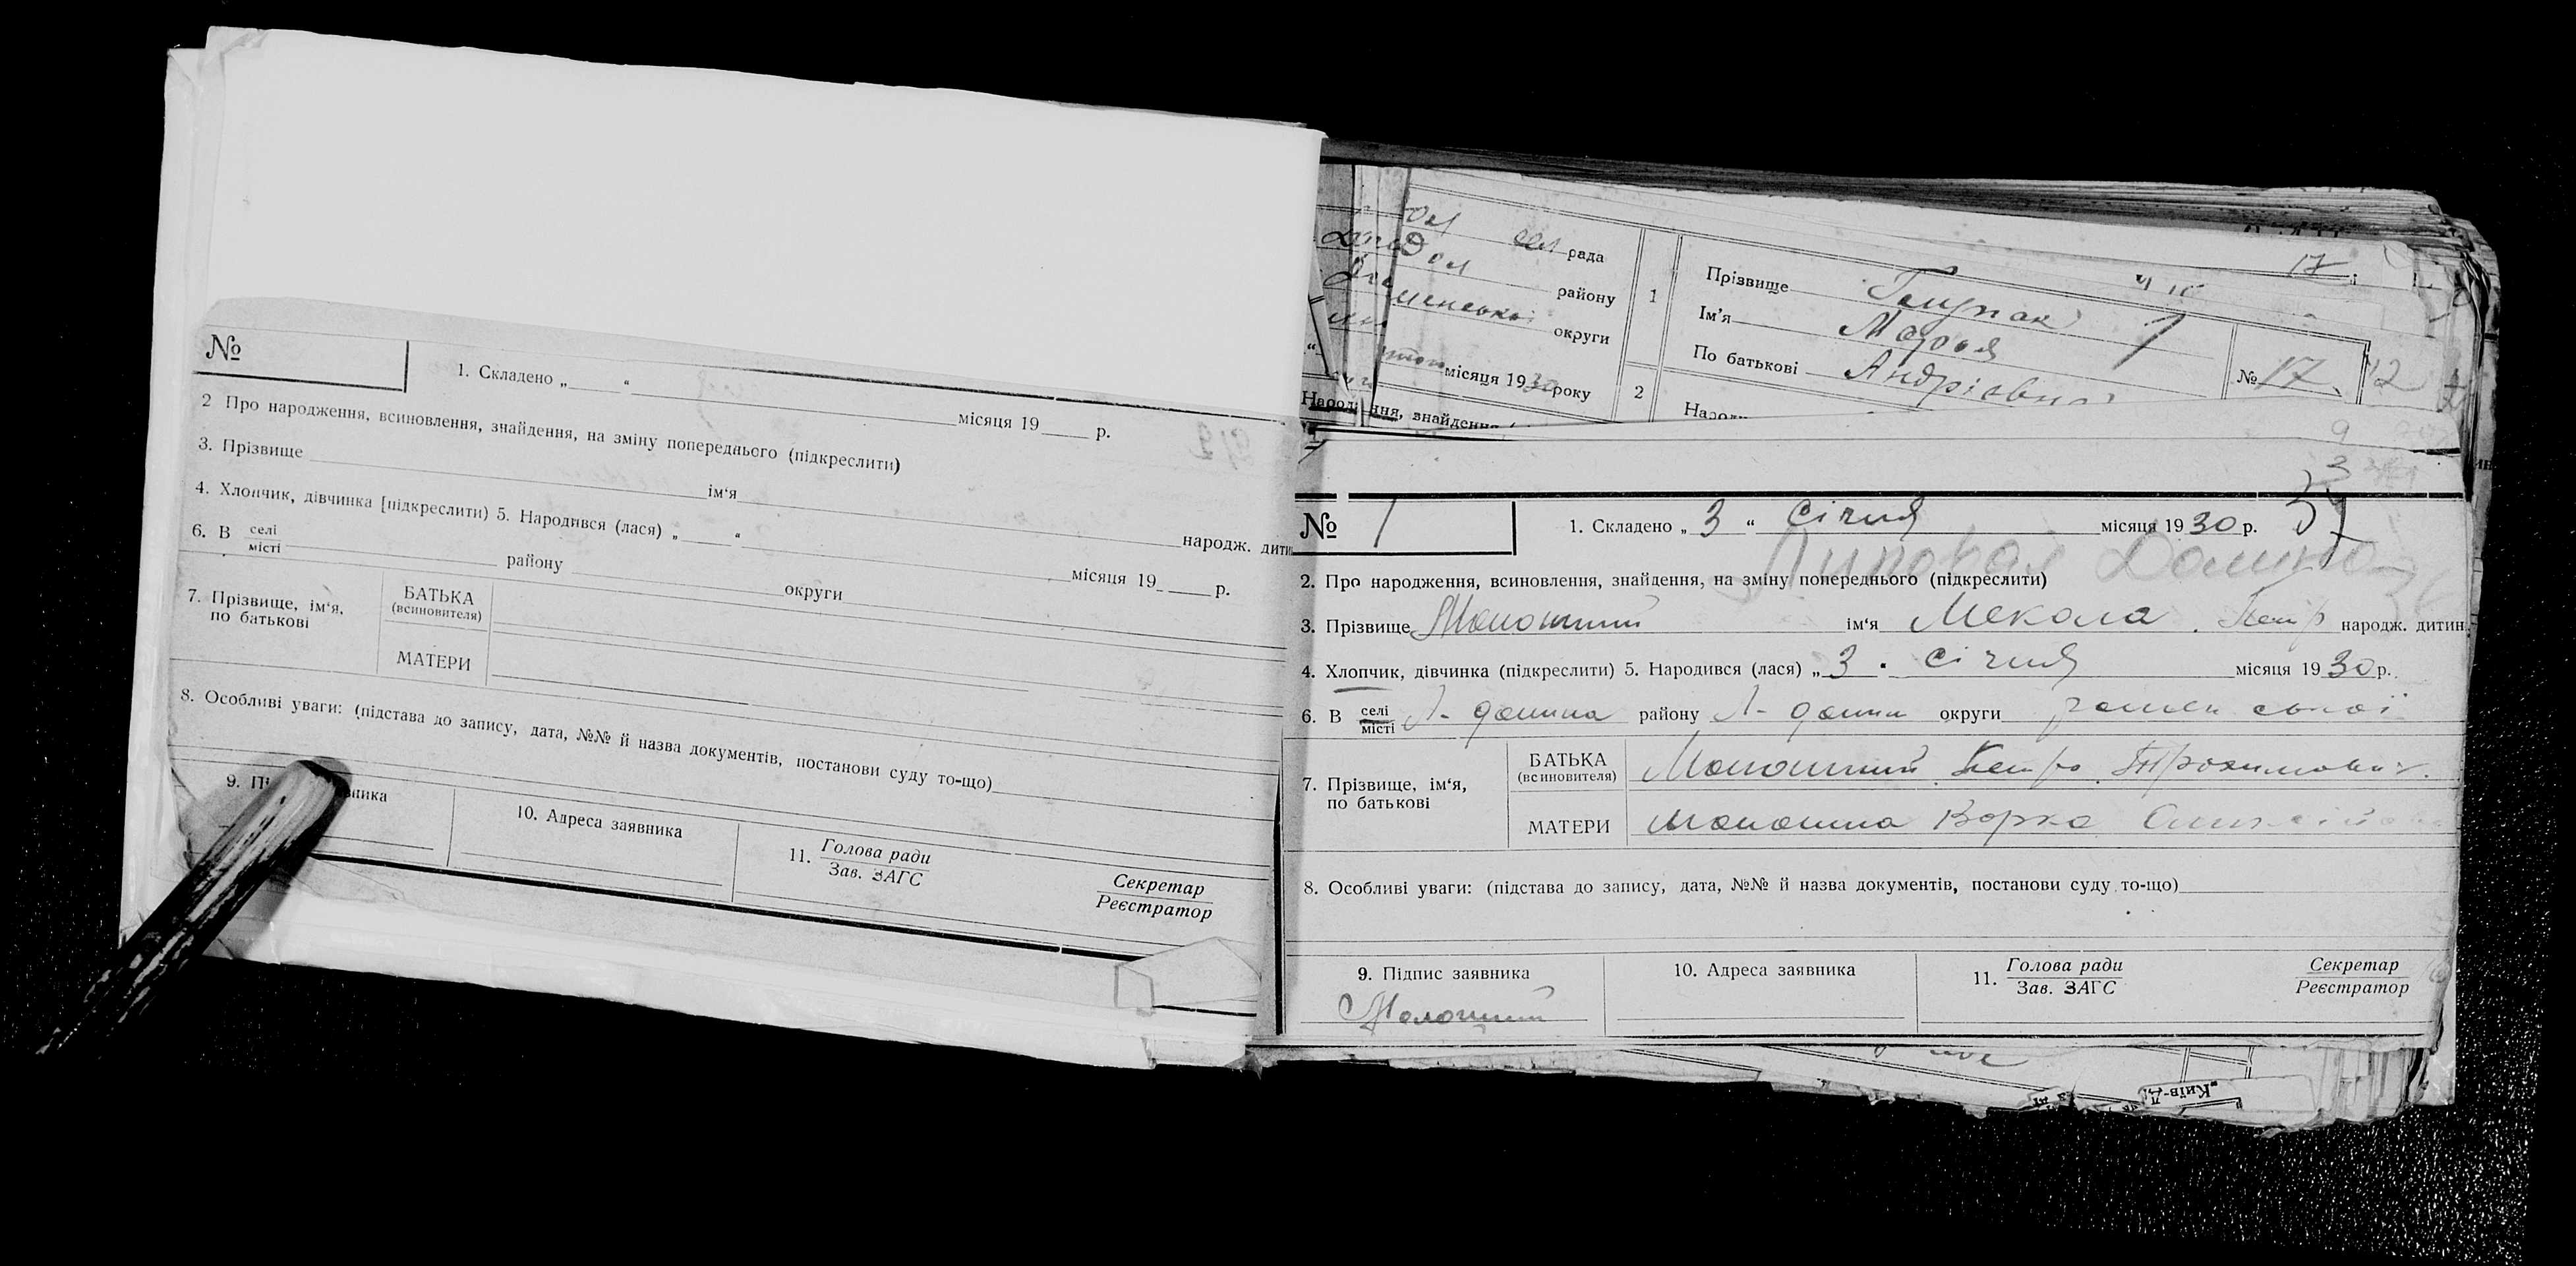 №
1. Складено „ “ місяця 19 р.
2 Про народження, всиновлення, знайдення, на зміну попереднього (підкреслити)
3. Прізвище ім‘я народж. дитин
4. Хлопчик, дівчинка [підкреслити) 5. Народився (лася) „ “ місяця 19 р.
6. В селі місті району округи
7. Прізвище, ім‘я, по батькові
БАТЬКА
(всиновителя)
МАТЕРИ
8. Особливі уваги: (підстава до запису, дата, №№ й назва документів, постанови суду то-що)
9. ника
10. Адреса заявника
11. Голова ради
Зав. ЗАГС
Секретар
Реєстратор
рада
району
округи
місяця 1930 року
1
2
Прізвище
Ім’я Марья
По батькові Андріівна
№ 17
12
17
знайдення
№ 1
1. Складено „ 3 “ Січня місяця 1930 р.
37
Липовая Долина
2. Про народження, всиновлення, знайдення, на зміну попереднього (підкреслити)
3. Прізвище ім‘я Мекола Петр народж. дитин.
4. Хлопчик, дівчинка (підкреслити) 5. Народився (лася) „ 3 “ Січня місяця 1930 р.
6. В селі місті Л- долина району Л- долин округи роменської
7. Прізвище, ім‘я,
по батькові
БАТЬКА
(всиновителя)
Петро Трохимович
МАТЕРИ
Ворка
8. Особливі уваги: (підстава до запису, дата, №№ й назва документів, постанови суду то-що)
9. Підпис заявника
10. Адреса заявника
11. Голова ради
Зав. ЗАГС
Секретар
Реєстратор